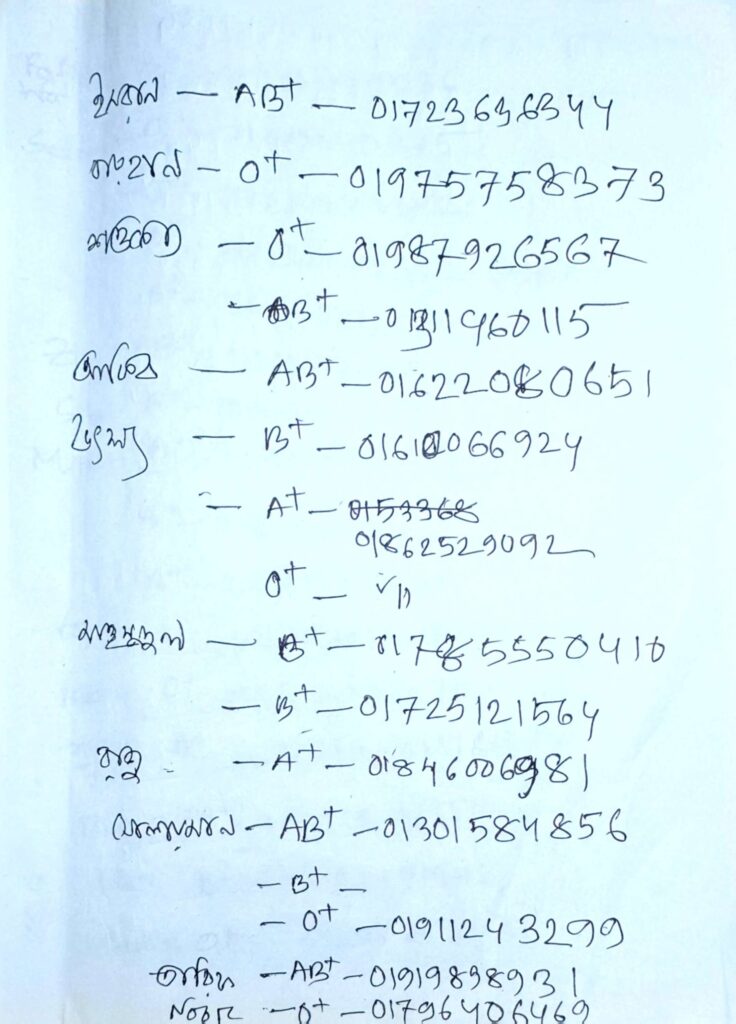 ইমরান — AB+ — 01723636344
ফারহান — O+ — 01975758373
— O+ — 01987926567
— AB+ — 01311960115
— AB+ — 01622080651
— B+ — 01610066924
— A+ — 0153368
01862529092
O+ — 〃
মাহমুদুল — B+ — 01785550410
— B+ — 01725121564
— A+ — 01846006981
সোলায়মান — AB+ — 01301584856
— B+ —
— O+ — 01911243299
তারিফ — AB+ — 01919898931
— O+ — 01796406469